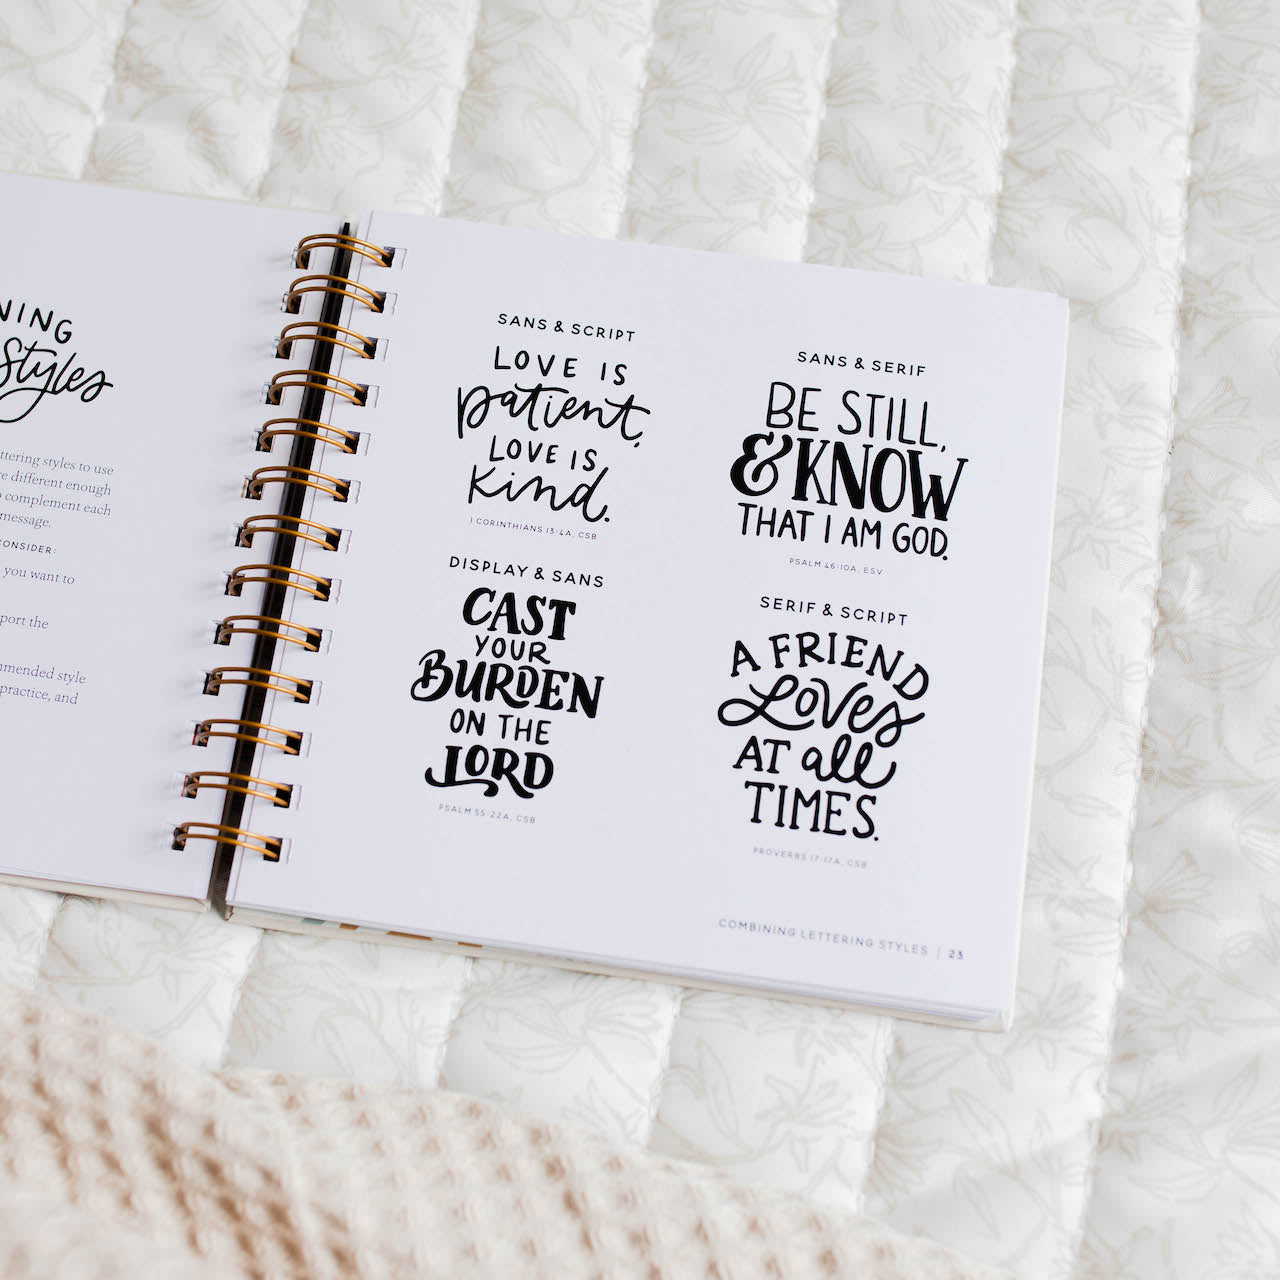 NING
Styles
ttering styles to use
re different enough
o complement each
message.
CONSIDER:
you want to
port the
mmended style
practice, and
SANS & SCRIPT
LOVE IS
patient,
LOVE IS
kind.
1 CORINTHIANS 13:4A, CSB
DISPLAY & SANS
CAST
YOUR
BURDEN
ON THE
LORD
PSALM 55:22A, CSB
SANS & SERIF
BE STILL,
& KNOW
THAT I AM GOD.
PSALM 46:10A, ESV
SERIF & SCRIPT
A FRIEND
Loves
AT all
TIMES.
PROVERBS 17:17A, CSB
COMBINING LETTERING STYLES | 23